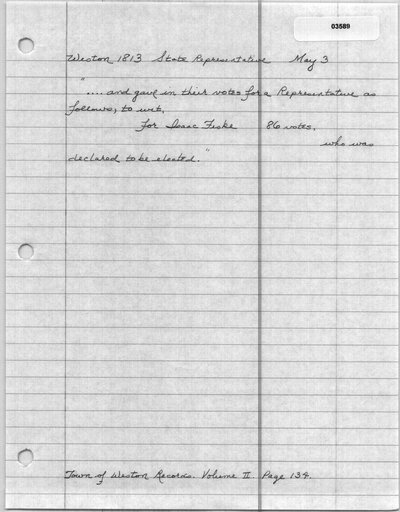 03589
Weston 1813 State Representative May 3
"....and gave in their votes for a Representative as
follows, to wit,
For Isaac Fiske 86 votes.
who was
declared to be elected."
Town of Weston Records. Volume II. Page 134.